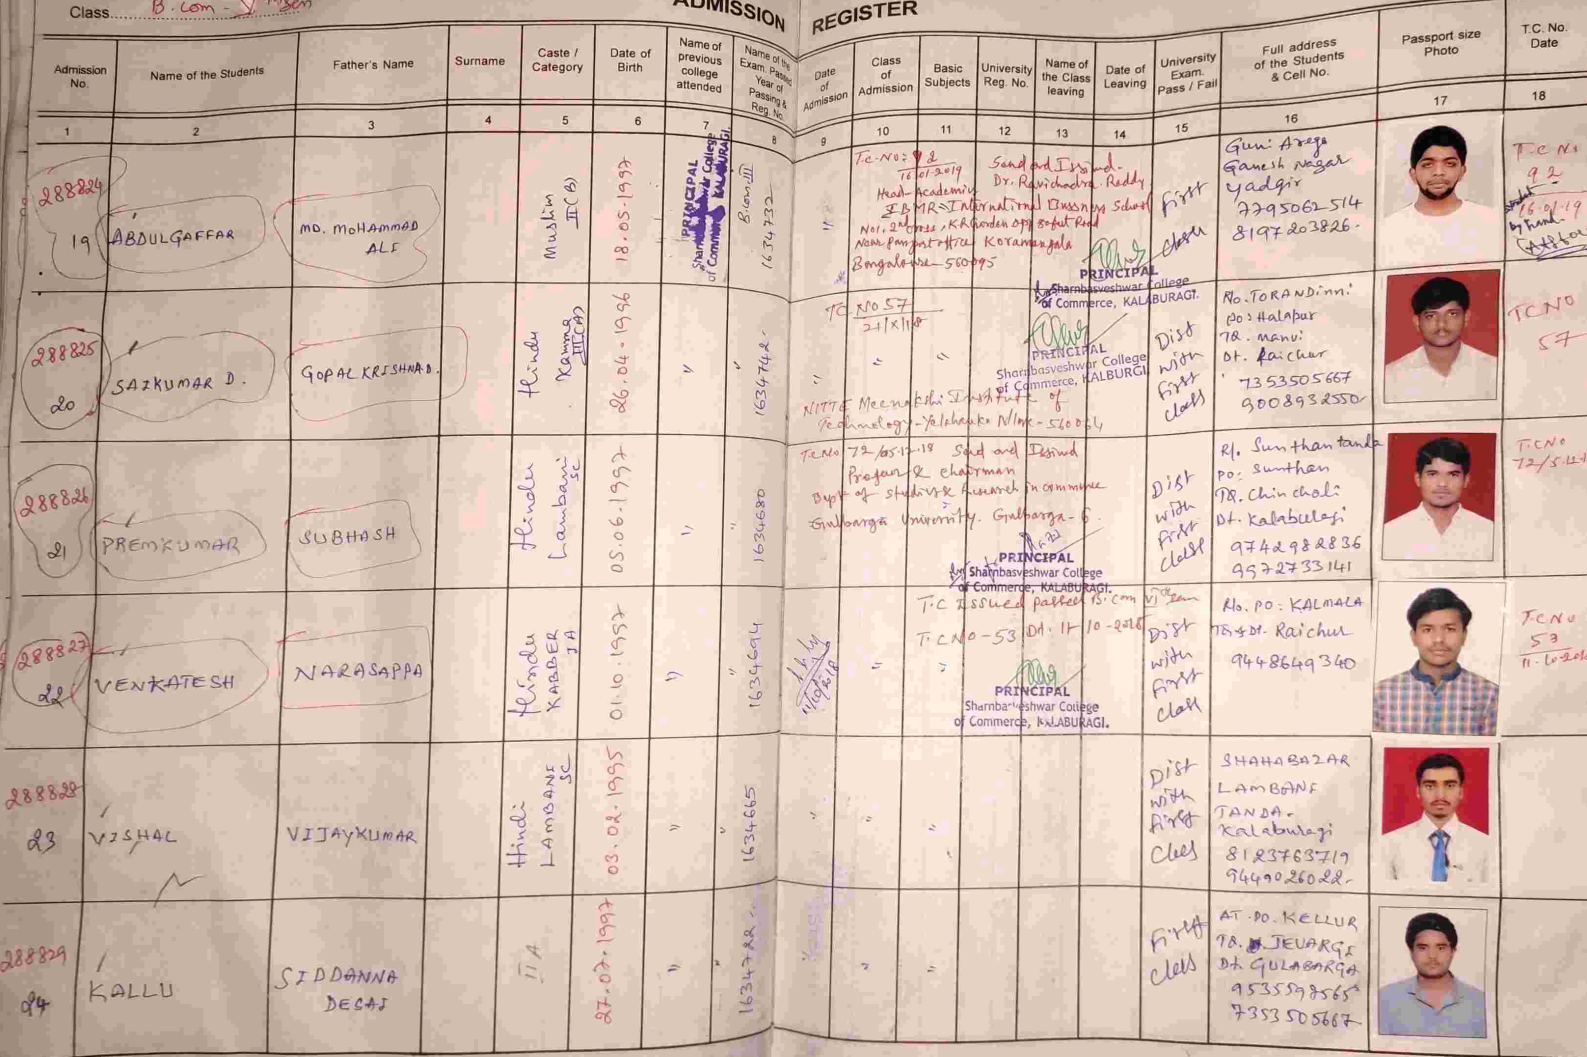 Class.... B.com - V. Sem
ADMISSION REGISTER
Admission No.
Name of the Students
Father's Name
Surname
Caste / Category
Date of Birth
Name of previous college attended
Name of the Exam. Passed Year of Passing & Reg. No.
Date of Admission
Class of Admission
Basic Subjects
University Reg. No.
Name of the Class leaving
Date of Leaving
University Exam. Pass / Fail
Full address of the Students & Cell No.
Passport size Photo
T.C. No. Date
1 2 3 4 5 6 7 8 9 10 11 12 13 14 15 16 17 18
288824
19
ABDULGAFFAR
MD. MOHAMMAD
ALI
Muslim
II(B)
18.05.1997
PRINCIPAL
of Commerce KALABURAGI.
B.com.III
1634732
T.C-NO:
16/01-2019
Send and Issued-
Dr. Ravichadra Reddy
Head-Academic
IBMR-International Bussness School
Near passport office Koramangala
Bangalouse-560095
PRINCIPAL
Sharnbasveshwar College
of Commerce, KALABURAGI.
First
class
Ganesh Nagar
Yadgir
7795062514
8197203826.
T.C No
92
16-01-19
288825
20
SAIKUMAR D.
GOPAL KRISHNA.D.
Hindu
Kamma
III(A)
26.04.1996
"
"
1634742
TC NO 57
"
"
"
PRINCIPAL
Sharnbasveshwar College
of Commerce, KALBURGI.
NITTE Meenakshi Institute of
Technology-Yelahanka B/lore-560064
Dist
with
First
class
R/o. TORANDinni
po: Halapur
TQ. manvi
Dt. Raichur
7353505667
9008932550
TC NO
57
288826
21
PREMKUMAR
SUBHASH
Hindu
Lambani
SC
05.06.1997
"
"
1634680
T.C No 72/05.12.18 Send and Issued
& chairman
Dept of studies & Research in commerce
Gulbarga University. Gulbarga-6.
PRINCIPAL
Sharnbasveshwar College
of Commerce, KALABURAGI.
Dist
with
First
class
R/. Sunthan tanda
PO: Sunthan
TQ. Chincholi
Dt. Kalabulagi
9742982836
9972733141
T.C NO
288827
22
VENKATESH
NARASAPPA
Hindu
KABBER
IA
01.10.1997
"
"
1634694
11/10/2018
"
"
T.C Issued passed B.com VI Sem
T.C NO-53 Dt. 11-10-2018
PRINCIPAL
Sharnbasveshwar College
of Commerce, KALABURAGI.
Dist
with
First
class
R/o. PO: KALMALA
TQ & Dt. Raichur
9448649340
T.C NO
53
288828
23
VISHAL
VIJAYKUMAR
Hindi
LAMBANI
SC
03.02.1995
"
"
1634665
"
"
"
Dist
with
First
class
SHAHABAZAR
LAMBANI
TANDA.
Kalaburagi
8123763719
9449026022.
288829
24
KALLU
SIDDANNA
DESAI
II A
27.07.1997
"
"
1634722
"
"
First
class
AT. PO. KELLUR
TQ. JEVARGI
Dt. GULABARGA
9535598565
7353505667